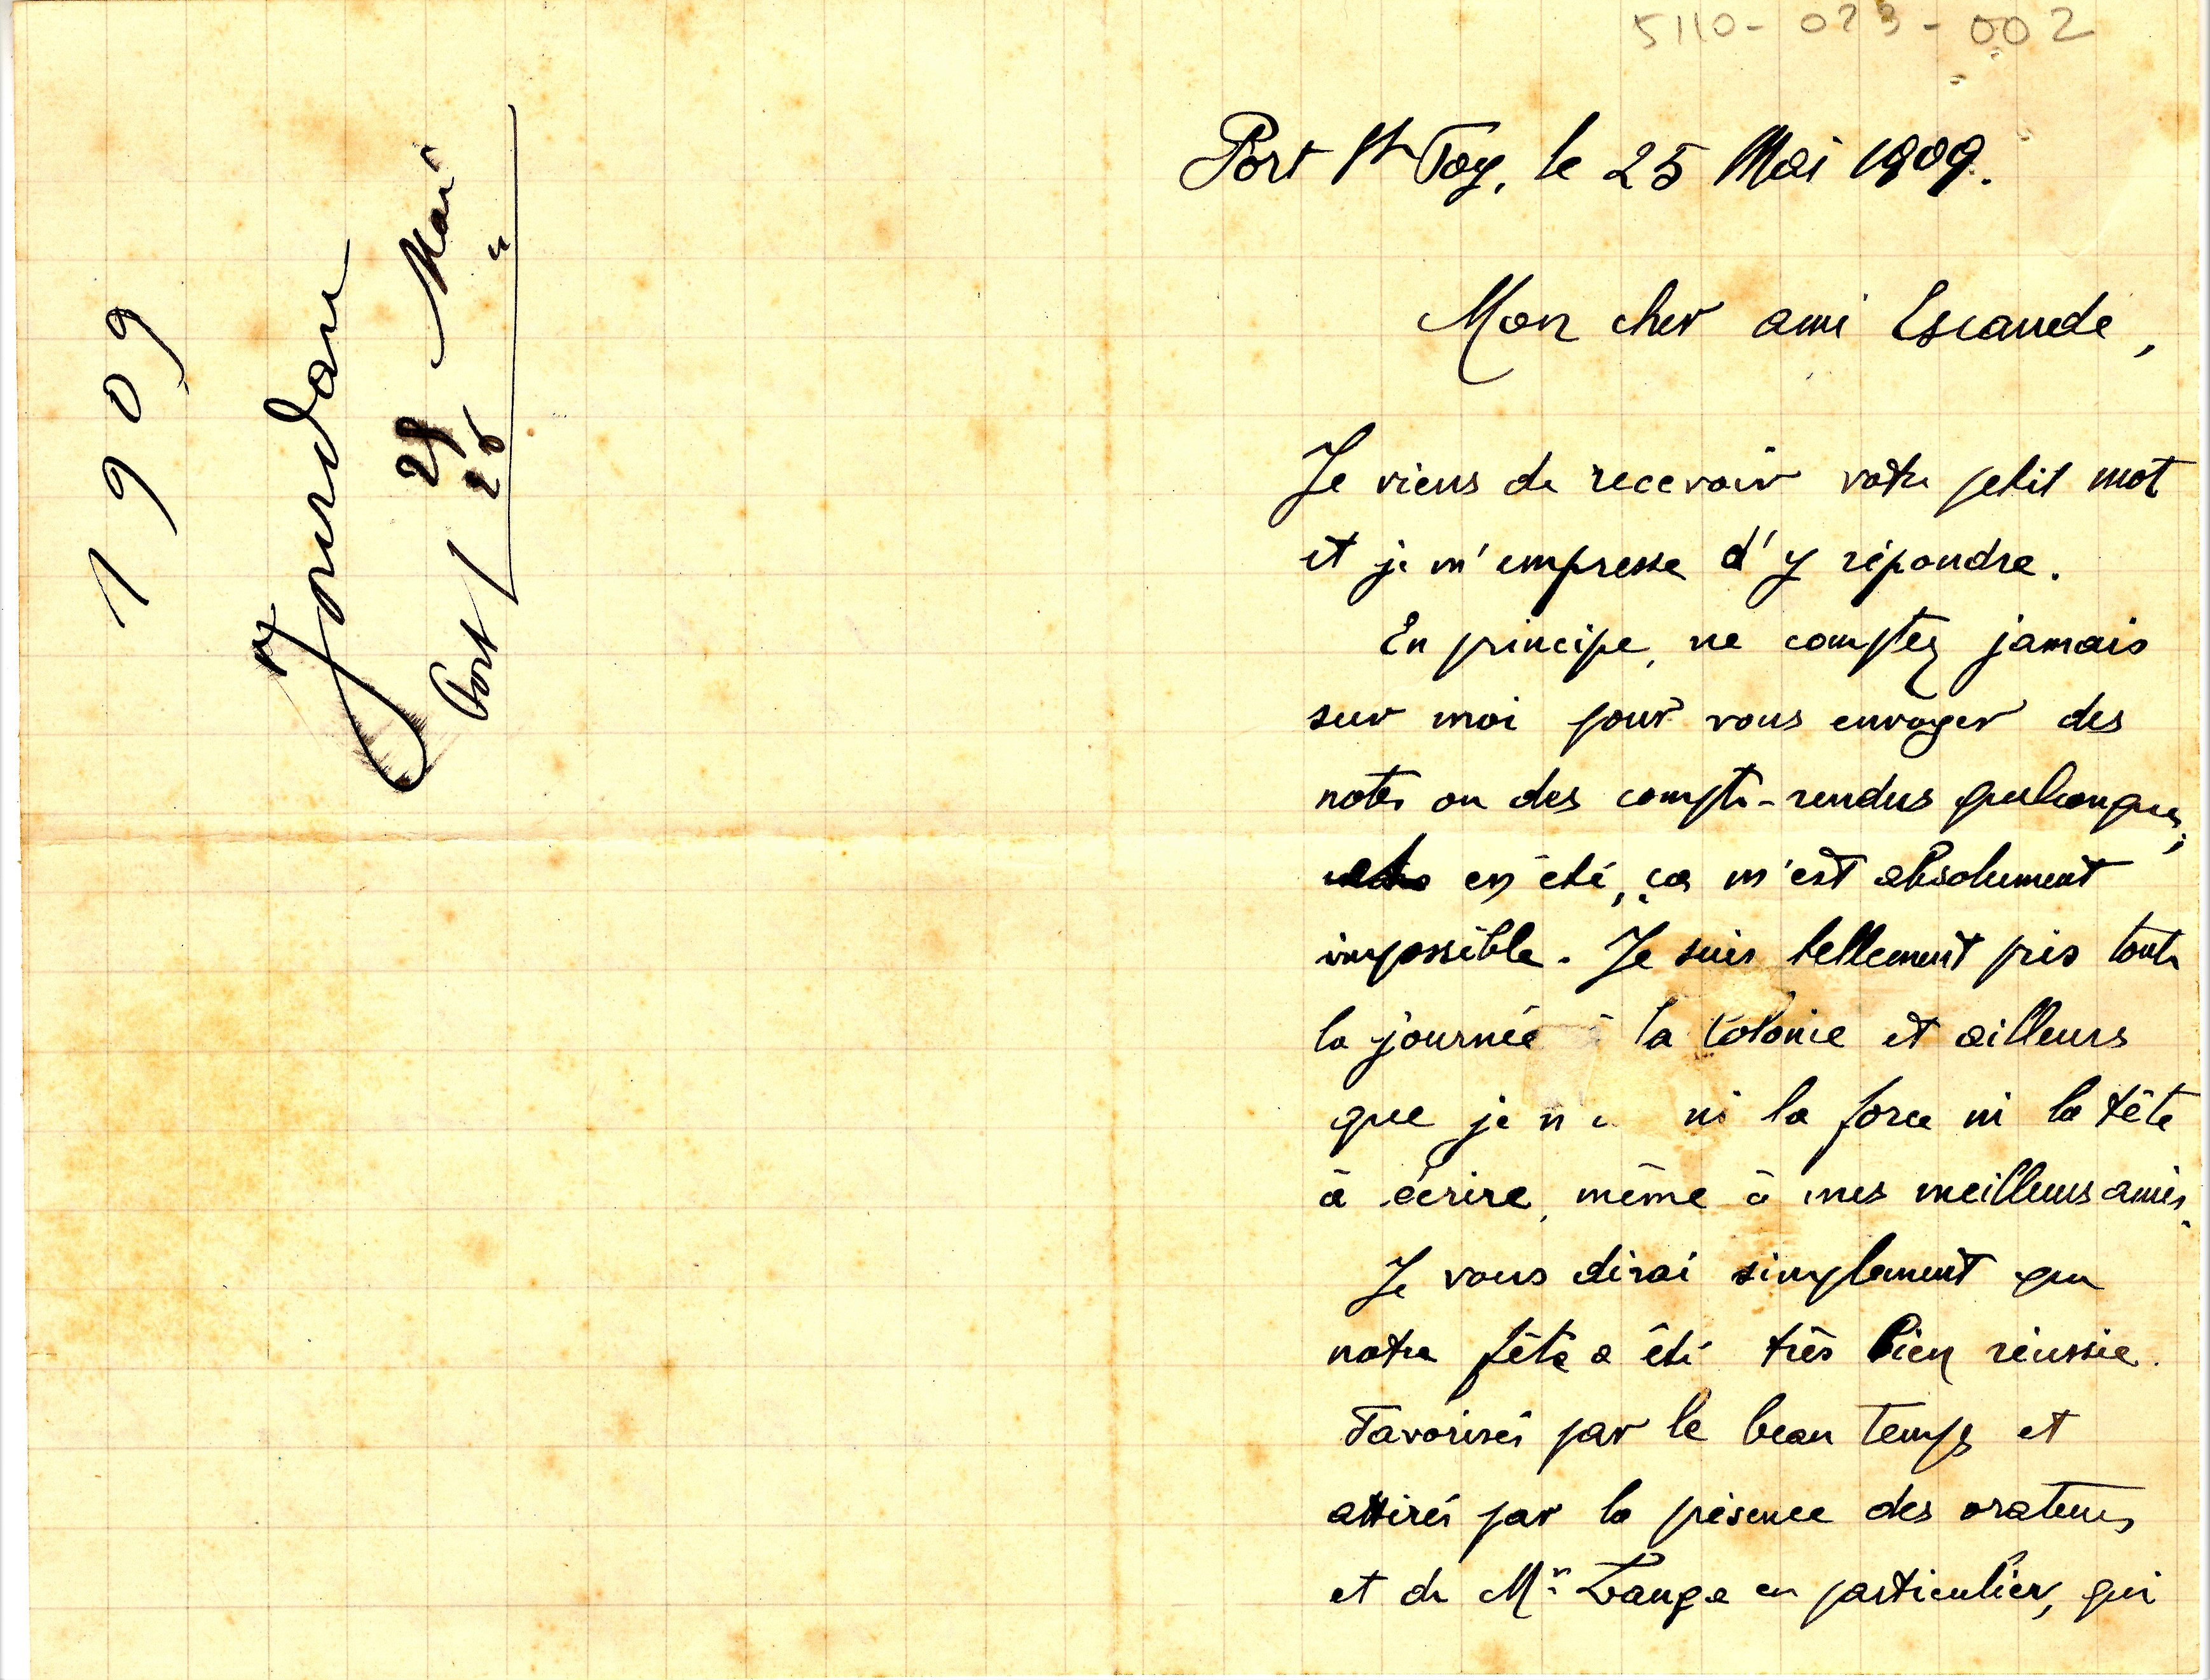 5110-023-002
Port Ste Foy, le 25 Mai 1909.
Mon cher ami Escande,
Je viens de recevoir votre petit mot
et je m'empresse d'y répondre.
En principe, ne comptez jamais
sur moi pour vous envoyer des
notes ou des compte-rendus quelconques;
en été, ça m'est absolument
impossible. Je suis tellement pris toute
la journée à la Colonie et ailleurs
que je n ni la force ni la tête
à écrire, même à mes meilleurs amis.
Je vous dirai simplement que
notre fête a été très bien réussie.
Favorisés par le beau temps et
attirés par la présence des orateurs
et de Mr Lauga en particulier, qui
1909
Jourdan
29 Mai
Port / 25 "